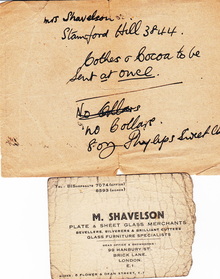 Mrs Shavelson.
Stamford Hill 3844.
Cocoa to be
sent at once.
No Collars
no Collars.
TEL: BISHOPSGATE 7074 (OFFICE)
M. SHAVELSON
PLATE & SHEET GLASS MERCHANTS
BEVELLERS, SILVERERS & BRILLIANT CUTTERS
GLASS FURNITURE SPECIALISTS
HEAD OFFICE & SHOWROOMS:
HANBURY ST.
BRICK LANE,
LONDON.
E.1.
FLOWER & DEAN STREET, E.1